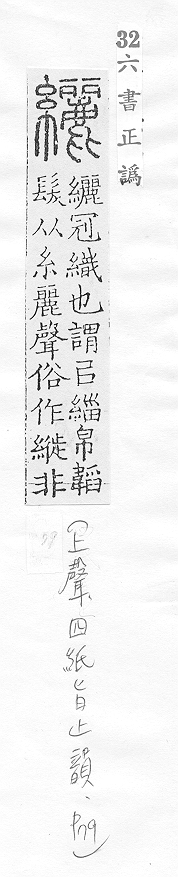 32 六書正譌
纚
纚冠織也謂㠯緇帛韜
髮从糸麗聲俗作縰非
(上聲四紙旨止韻、P79)